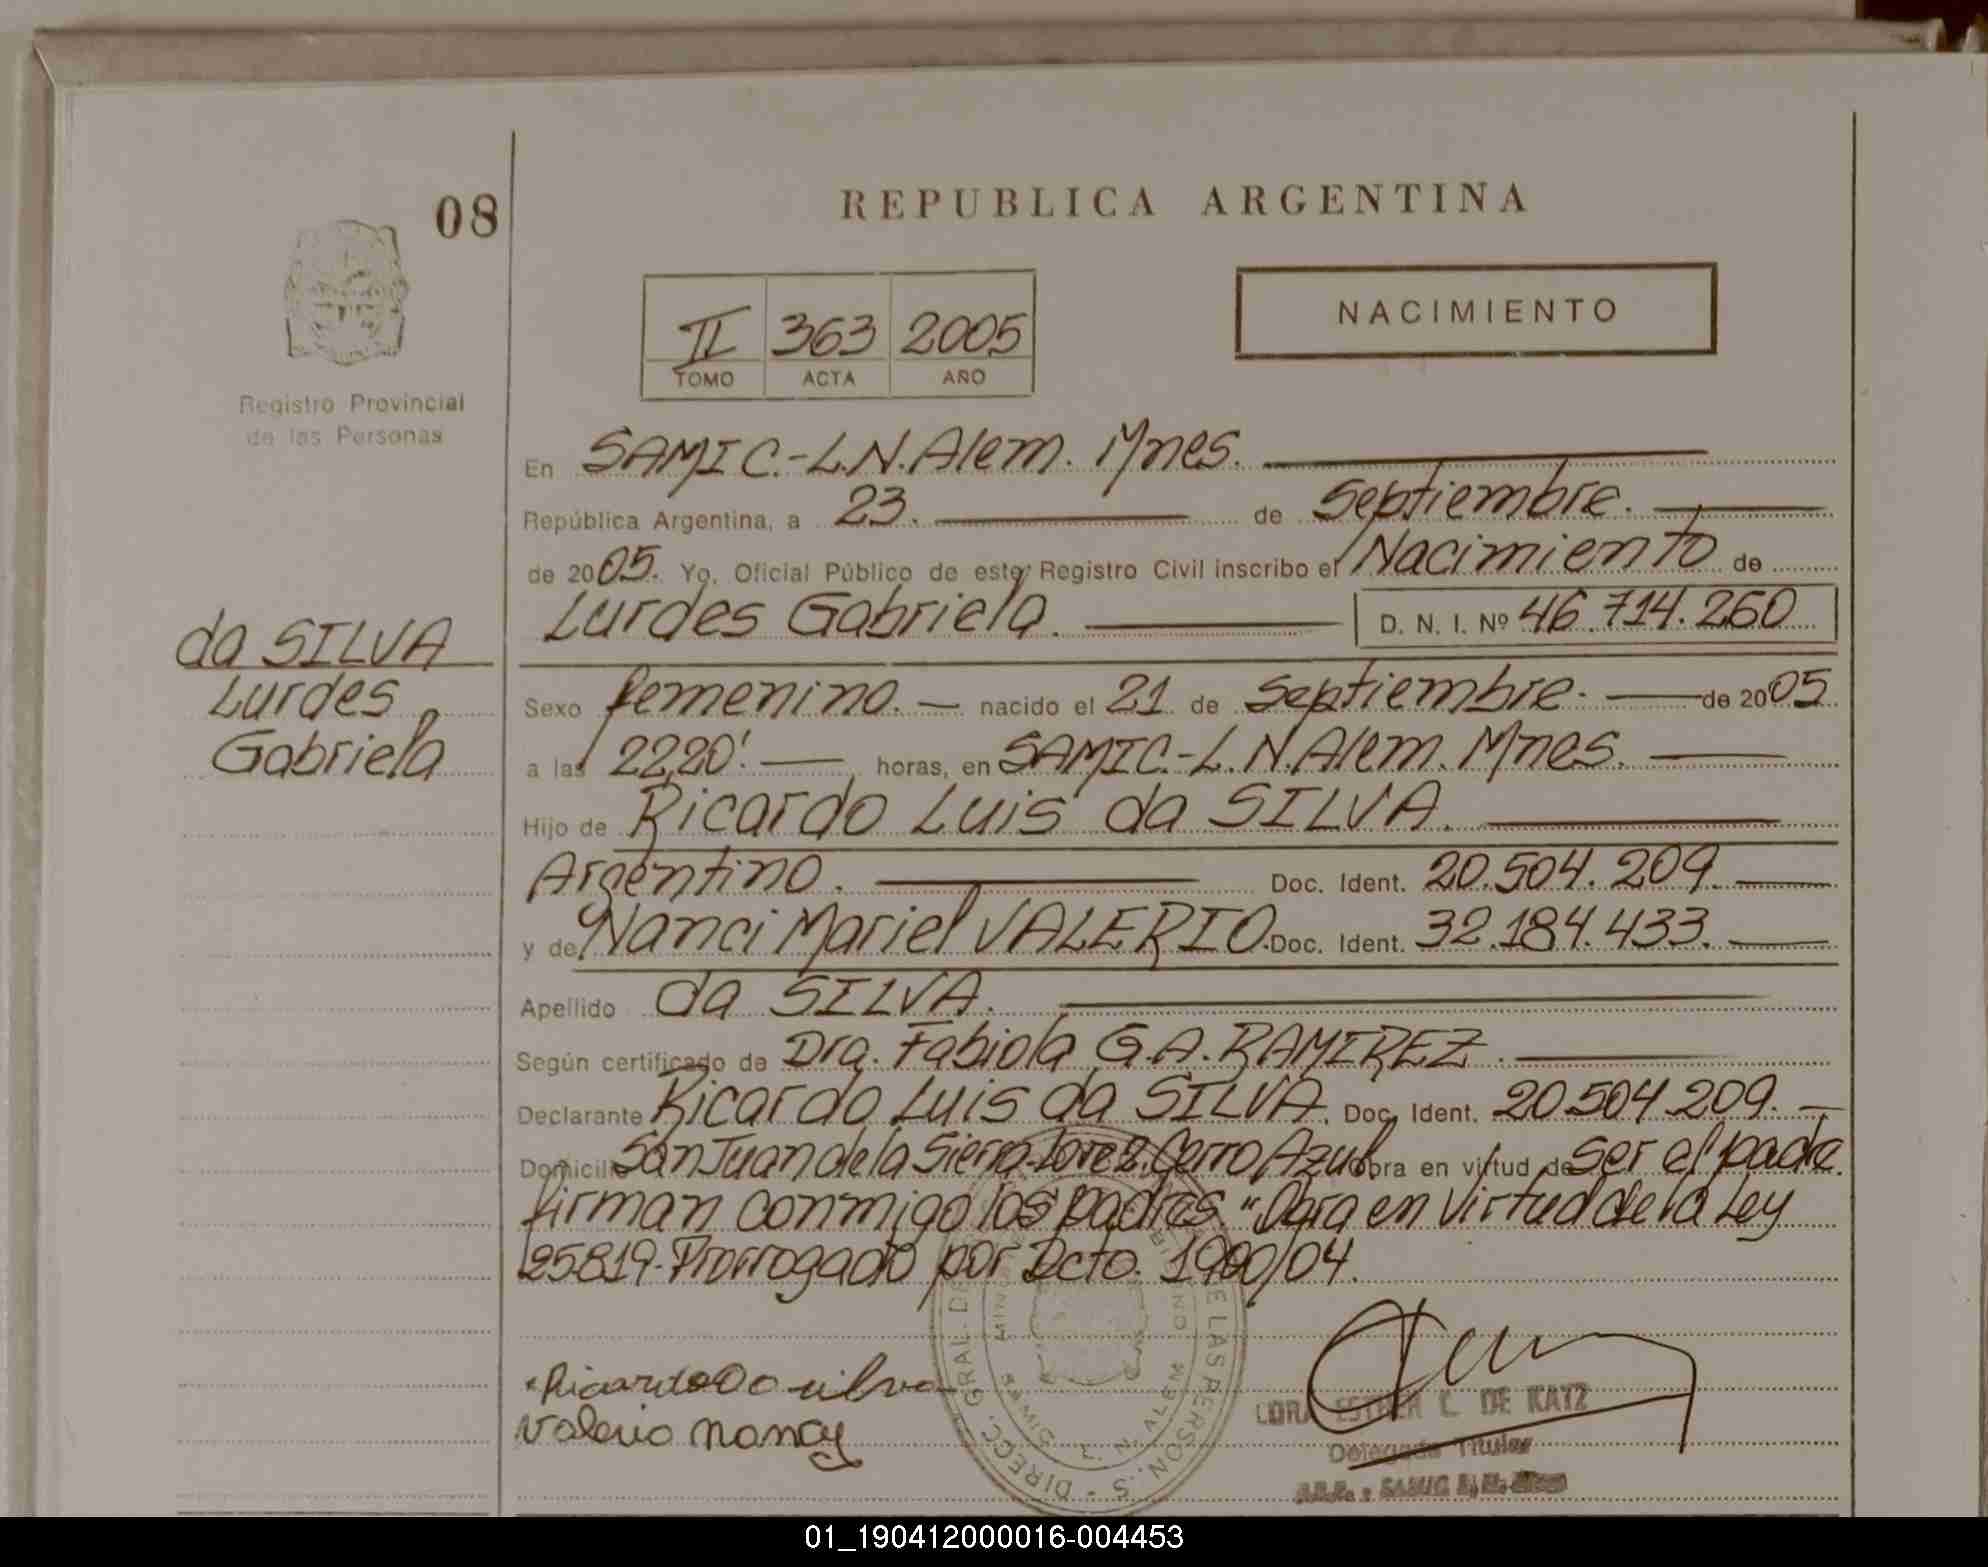 08
REPUBLICA ARGENTINA
NACIMIENTO
II 363 2005
TOMO ACTA AÑO
Registro Provincial
de las Personas
En SAMIC.-L.N.Alem. Mnes.
República Argentina, a 23. de Septiembre.
de 2005. Yo, Oficial Público de este Registro Civil inscribo el Nacimiento de
Lurdes Gabriela. D. N. I. Nº 46.714.260
da SILVA
Lurdes
Gabriela
Sexo femenino. nacido el 21 de Septiembre. de 2005
a las 22,20'. horas, en SAMIC.-L.N.Alem. Mnes.
Hijo de Ricardo Luis da SILVA.
Argentino. Doc. Ident. 20.504.209.
y de Nanci Mariel VALERIO. Doc. Ident. 32.184.433.
Apellido da SILVA.
Según certificado de Dra. Fabiola G.A. RAMIREZ.
Declarante Ricardo Luis da SILVA. Doc. Ident. 20.504.209.
Domicilio San Juan de la Sierra Cerro Azul Obra en virtud de ser el padre.
firman conmigo los padres. "Obra en virtud de la Ley
25819-Prorrogado por Dcto. 1900/04.
Ricardo Da silva
Valerio Nancy
DIRECC. GRAL. DE LAS PERSON.
L.N. ALEM
ESTHER C. DE KATZ
Delegada Titular
01_190412000016-004453